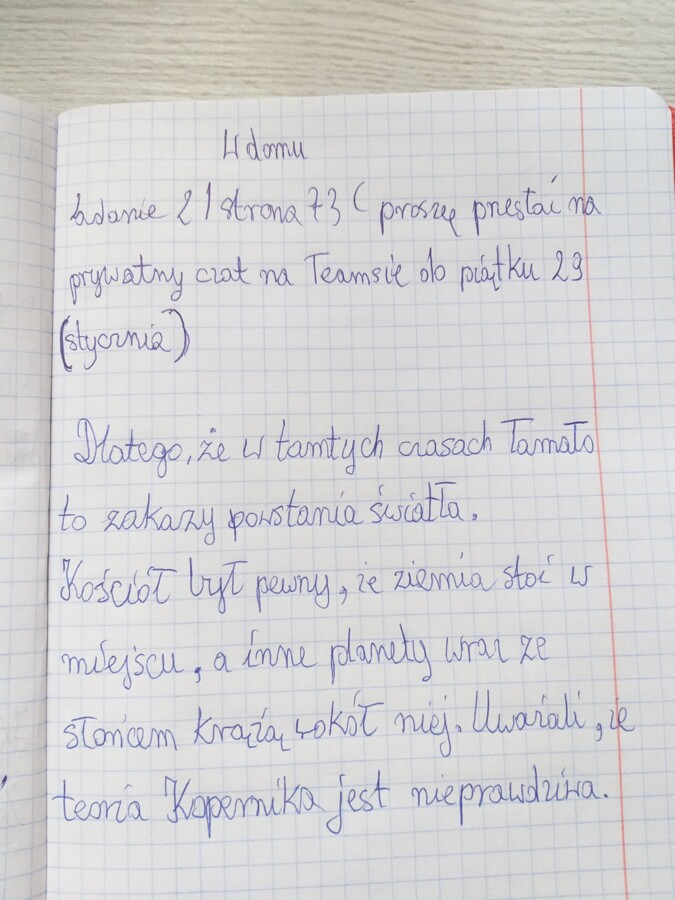 W domu
Zadanie 2 / strona 73 ( proszę przesłać na
prywatny czat na Teamsie do piątku 29
(stycznia)
Dlatego, że w tamtych czasach łamało
to zakazy powstania świata.
Kościół był pewny, że ziemia stoi w
miejscu, a inne planety wraz ze
słońcem krążą wokół niej. Uważali, że
teoria Kopernika jest nieprawdziwa.